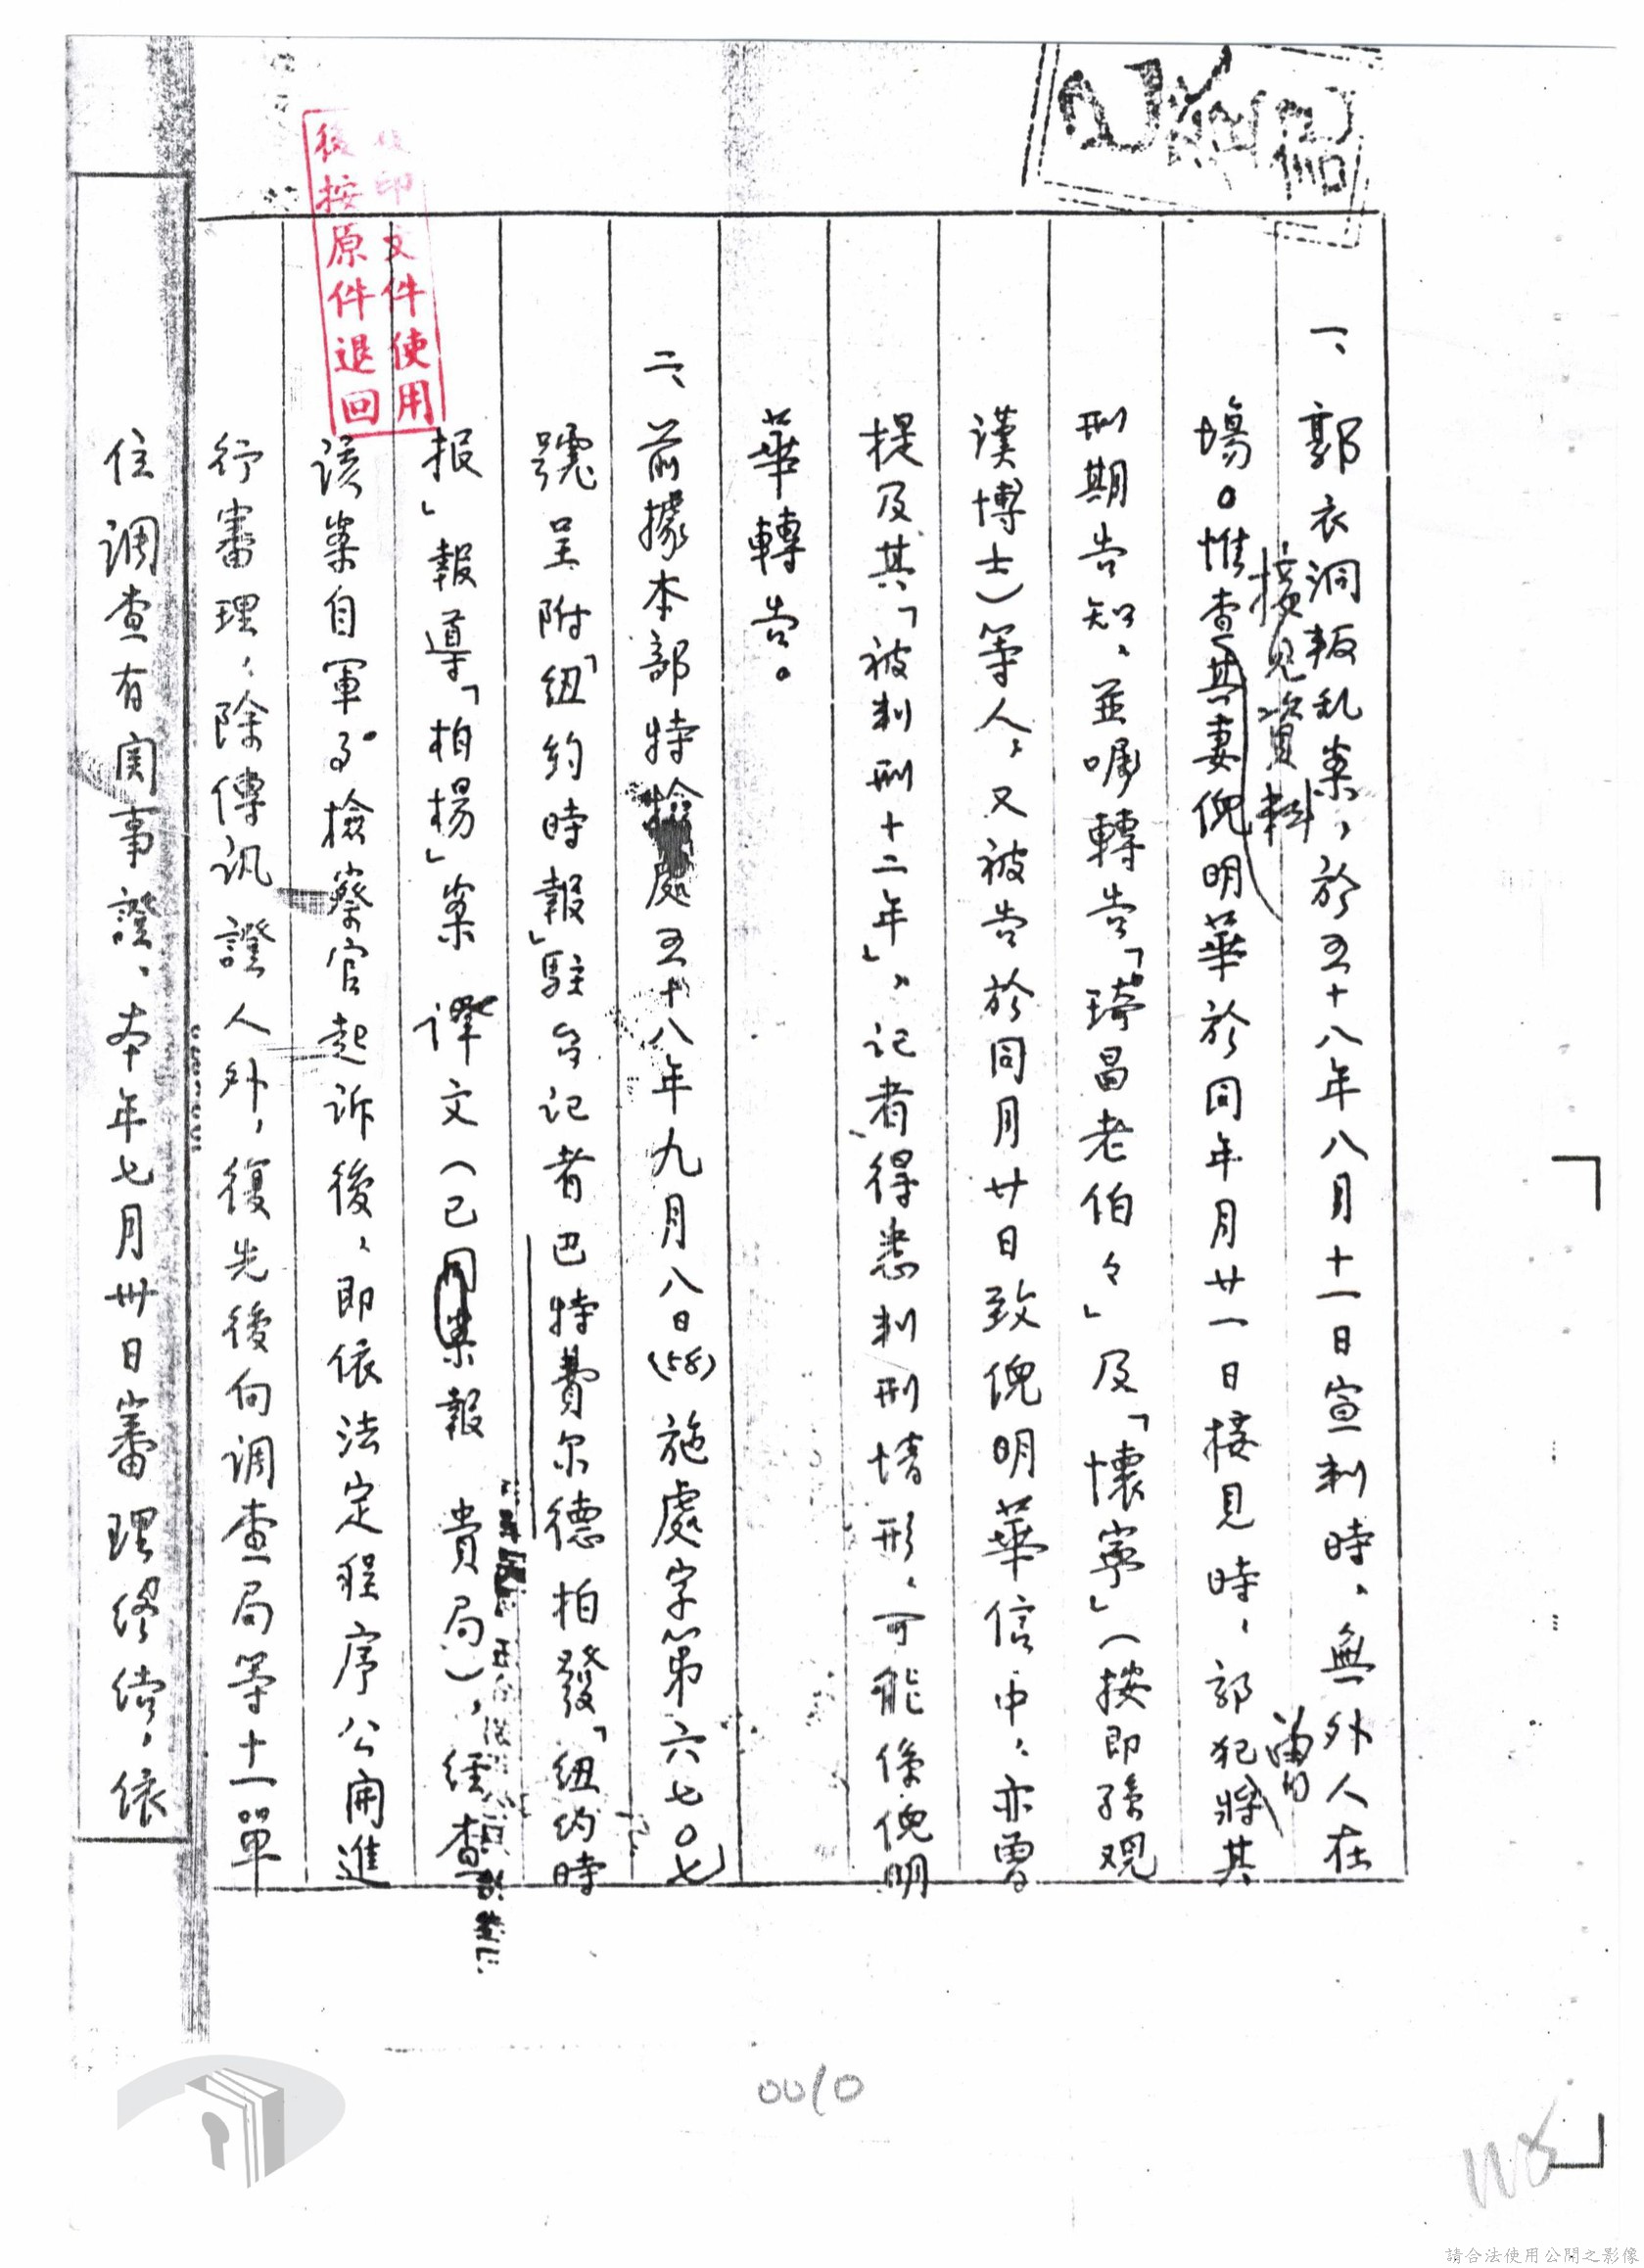 一、郭衣洞叛乱案，於五十八年八月十一日宣判時，無外人在
場。惟查接見資料其妻倪明華於同年月廿一日接見時，郭犯曾將其
刑期告知，並囑轉告「琦昌老伯々」及「懷寧」（按即孫观
漢博士）等人，又被告於同月廿日致倪明華信中，亦曾
提及其「被判刑十二年」，记者得悉判刑情形，可能係倪明
華轉告。
二、前據本部特檢處五十八年九月八日(58)施處字第六七〇七
號呈附「纽約時報」駐台记者巴特費尔德拍發「纽约時
报」報導「柏楊」案譯文（已同案報 貴局），經查
該案自軍事檢察官起诉後，即依法定程序公開進
行審理，除傳讯證人外，復先後向调查局等十一單
位调查有関事證，本年七月卅日審理終結，依
複印文件使用
後按原件退回
0010
118
請合法使用公開之影像